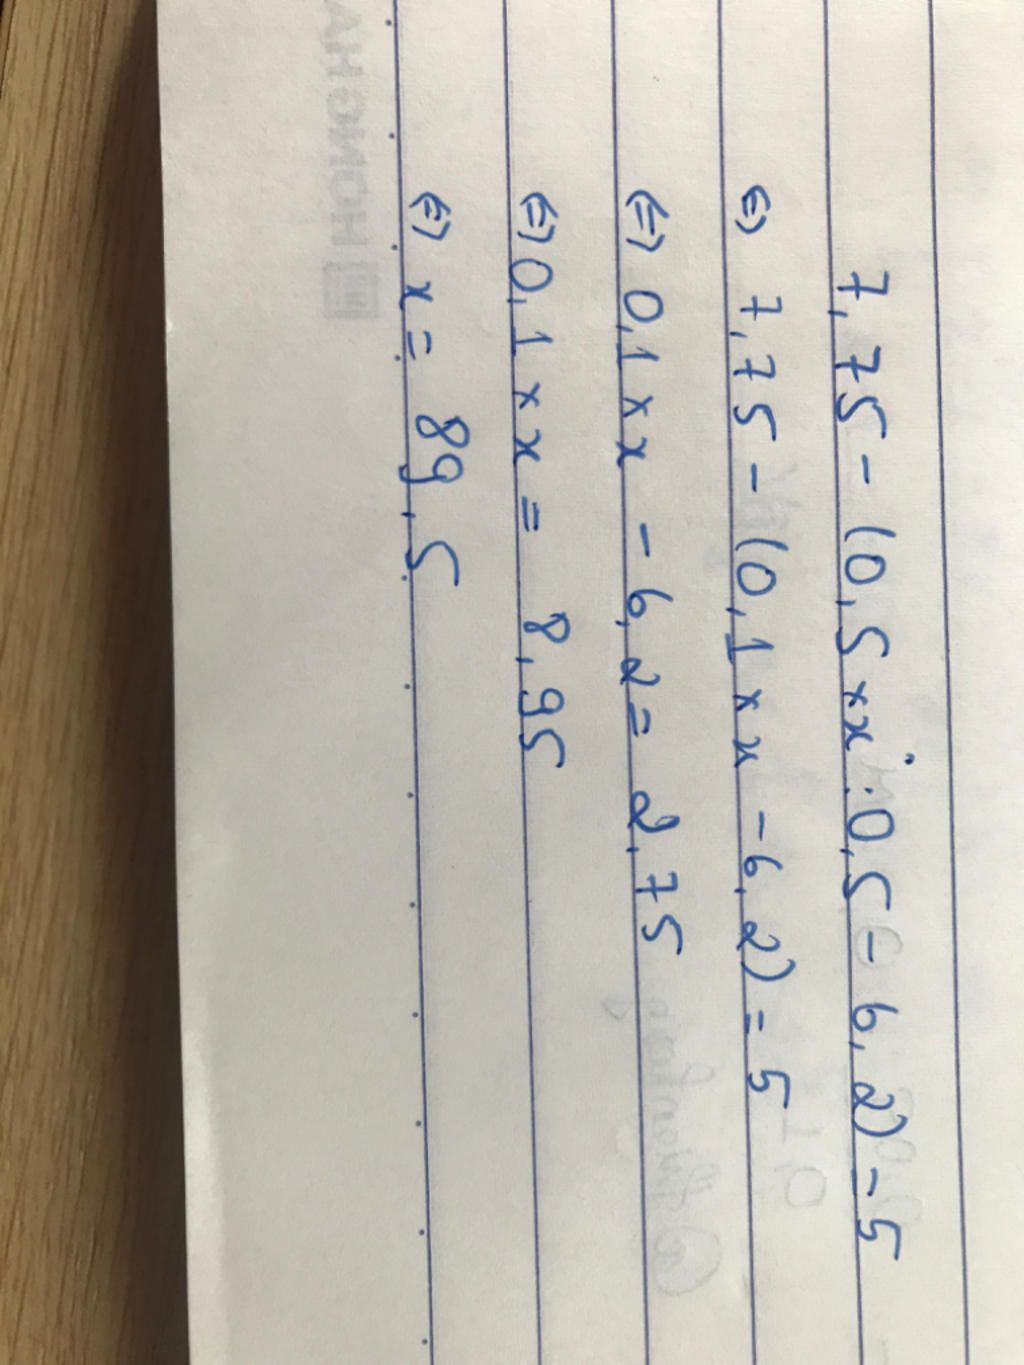 7,75 - (0,5 x x : 0,5 - 6,2) - 5
<=> 7,75 - (0,1 x x - 6,2) = 5
<=> 0,1 x x - 6,2 = 2,75
<=> 0,1 x x = 8,95
<=> x = 89,5
HONG HA